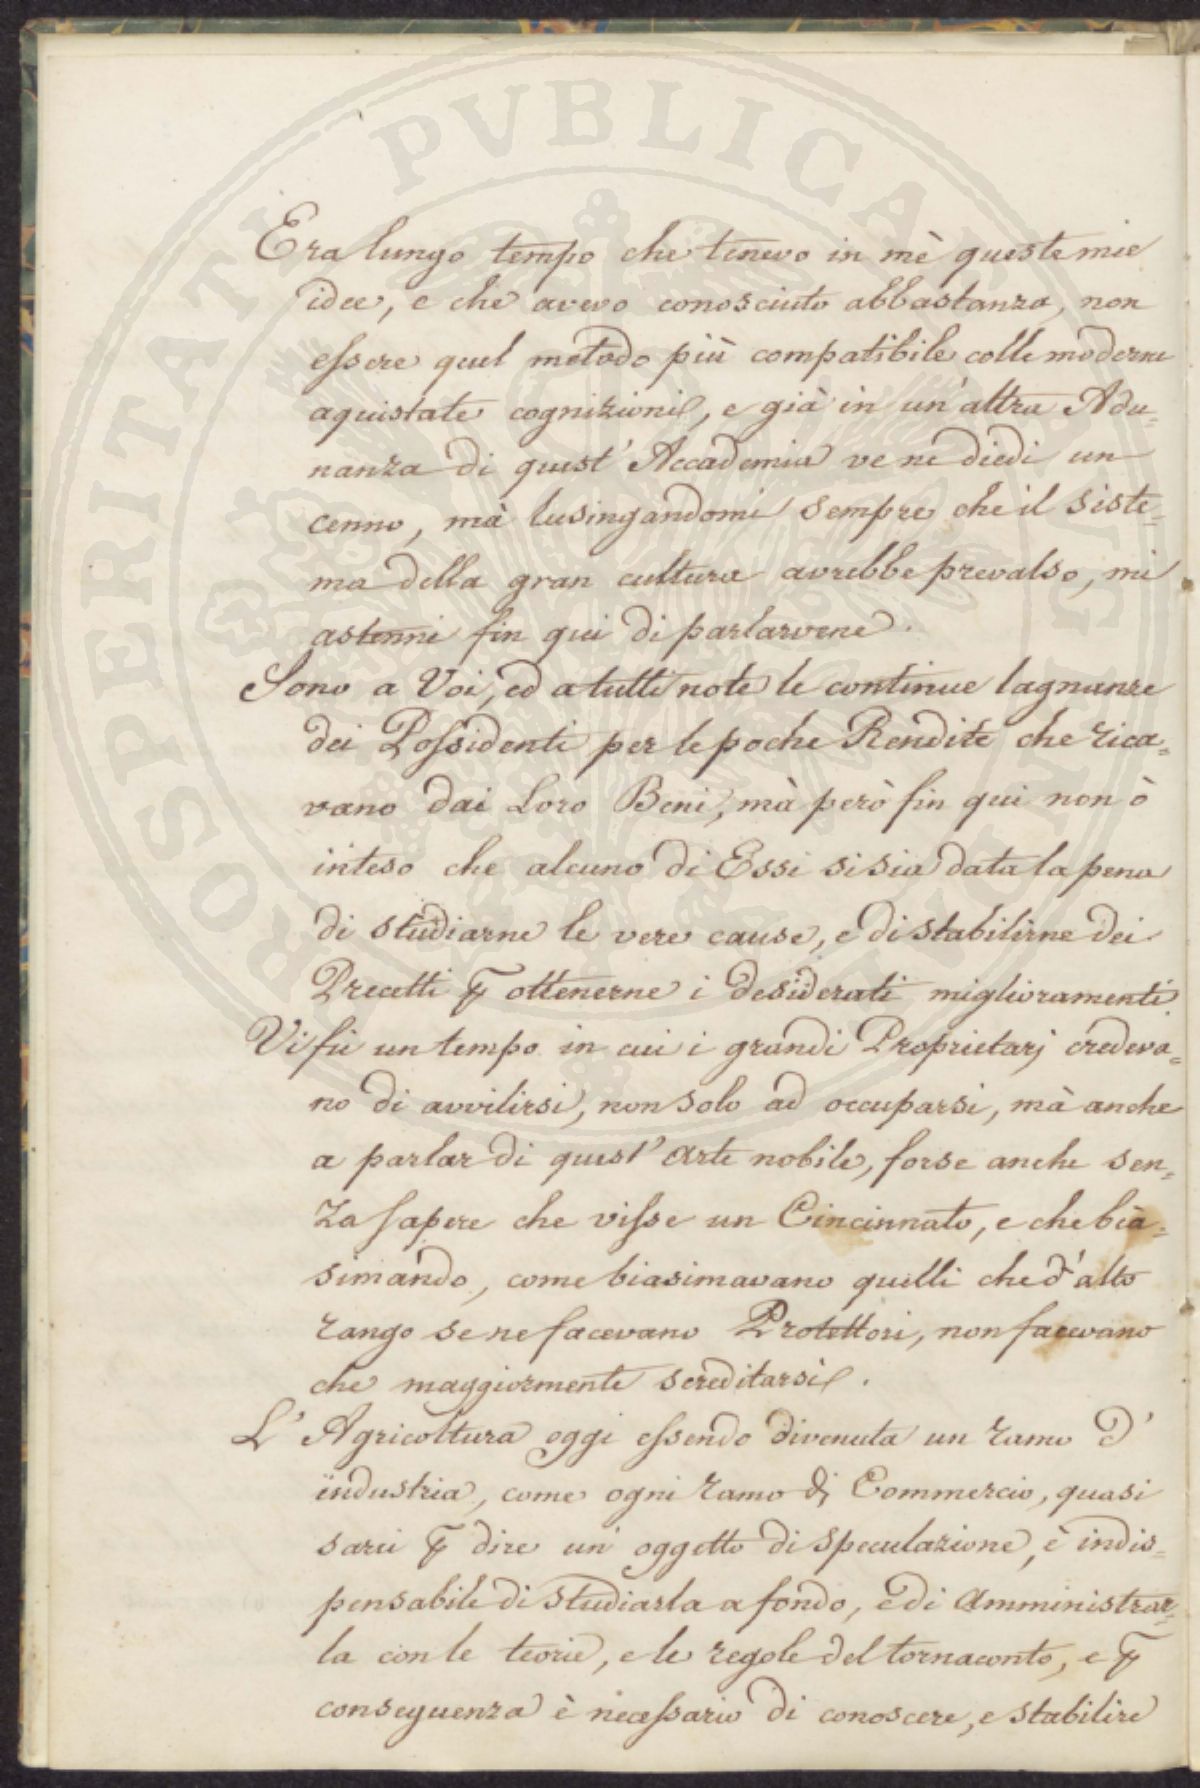 Era lungo tempo che tenevo in mè queste mie
idee, e che avevo conosciuto abbastanza, non
essere quel metodo più compatibile colle moderne
aquistate cognizioni, e già in un'altra Adu=
nanza di quest'Accademia ve ne diedi un
cenno, mà lusingandomi sempre che il siste=
ma della gran cultura avrebbe prevalso, mi
astenni fin qui di parlarvene.
Sono a Voi, ed a tutti note le continue lagnanze
dei Possidenti per le poche Rendite che rica=
vano dai Loro Beni, mà però fin qui non ò
inteso che alcuno di Essi si sia data la pena
di studiarne le vere cause, e di stabilirne dei
Precetti p ottenerne i desiderati miglioramenti.
Vi fù un tempo in cui i grandi Proprietarj credeva=
no di avvilirsi, non solo ad occuparsi, mà anche
a parlar di quest'arte nobile, forse anche sen=
za sapere che visse un Cincinnato, e che bia=
simando, come biasimavano quelli che d'alto
rango se ne facevano Protettori, non facevano
che maggiormente screditarsi.
L'Agricoltura oggi essendo divenuta un ramo d'
industria, come ogni ramo di Commercio, quasi
sarei p dire un oggetto di speculazione, è indis=
pensabile di studiarla a fondo, e di Amministrar=
la con le teorie, e le regole del tornaconto, e p
conseguenza è necessario di conoscere, e stabilire
PROSPERITATI PVBLICAE